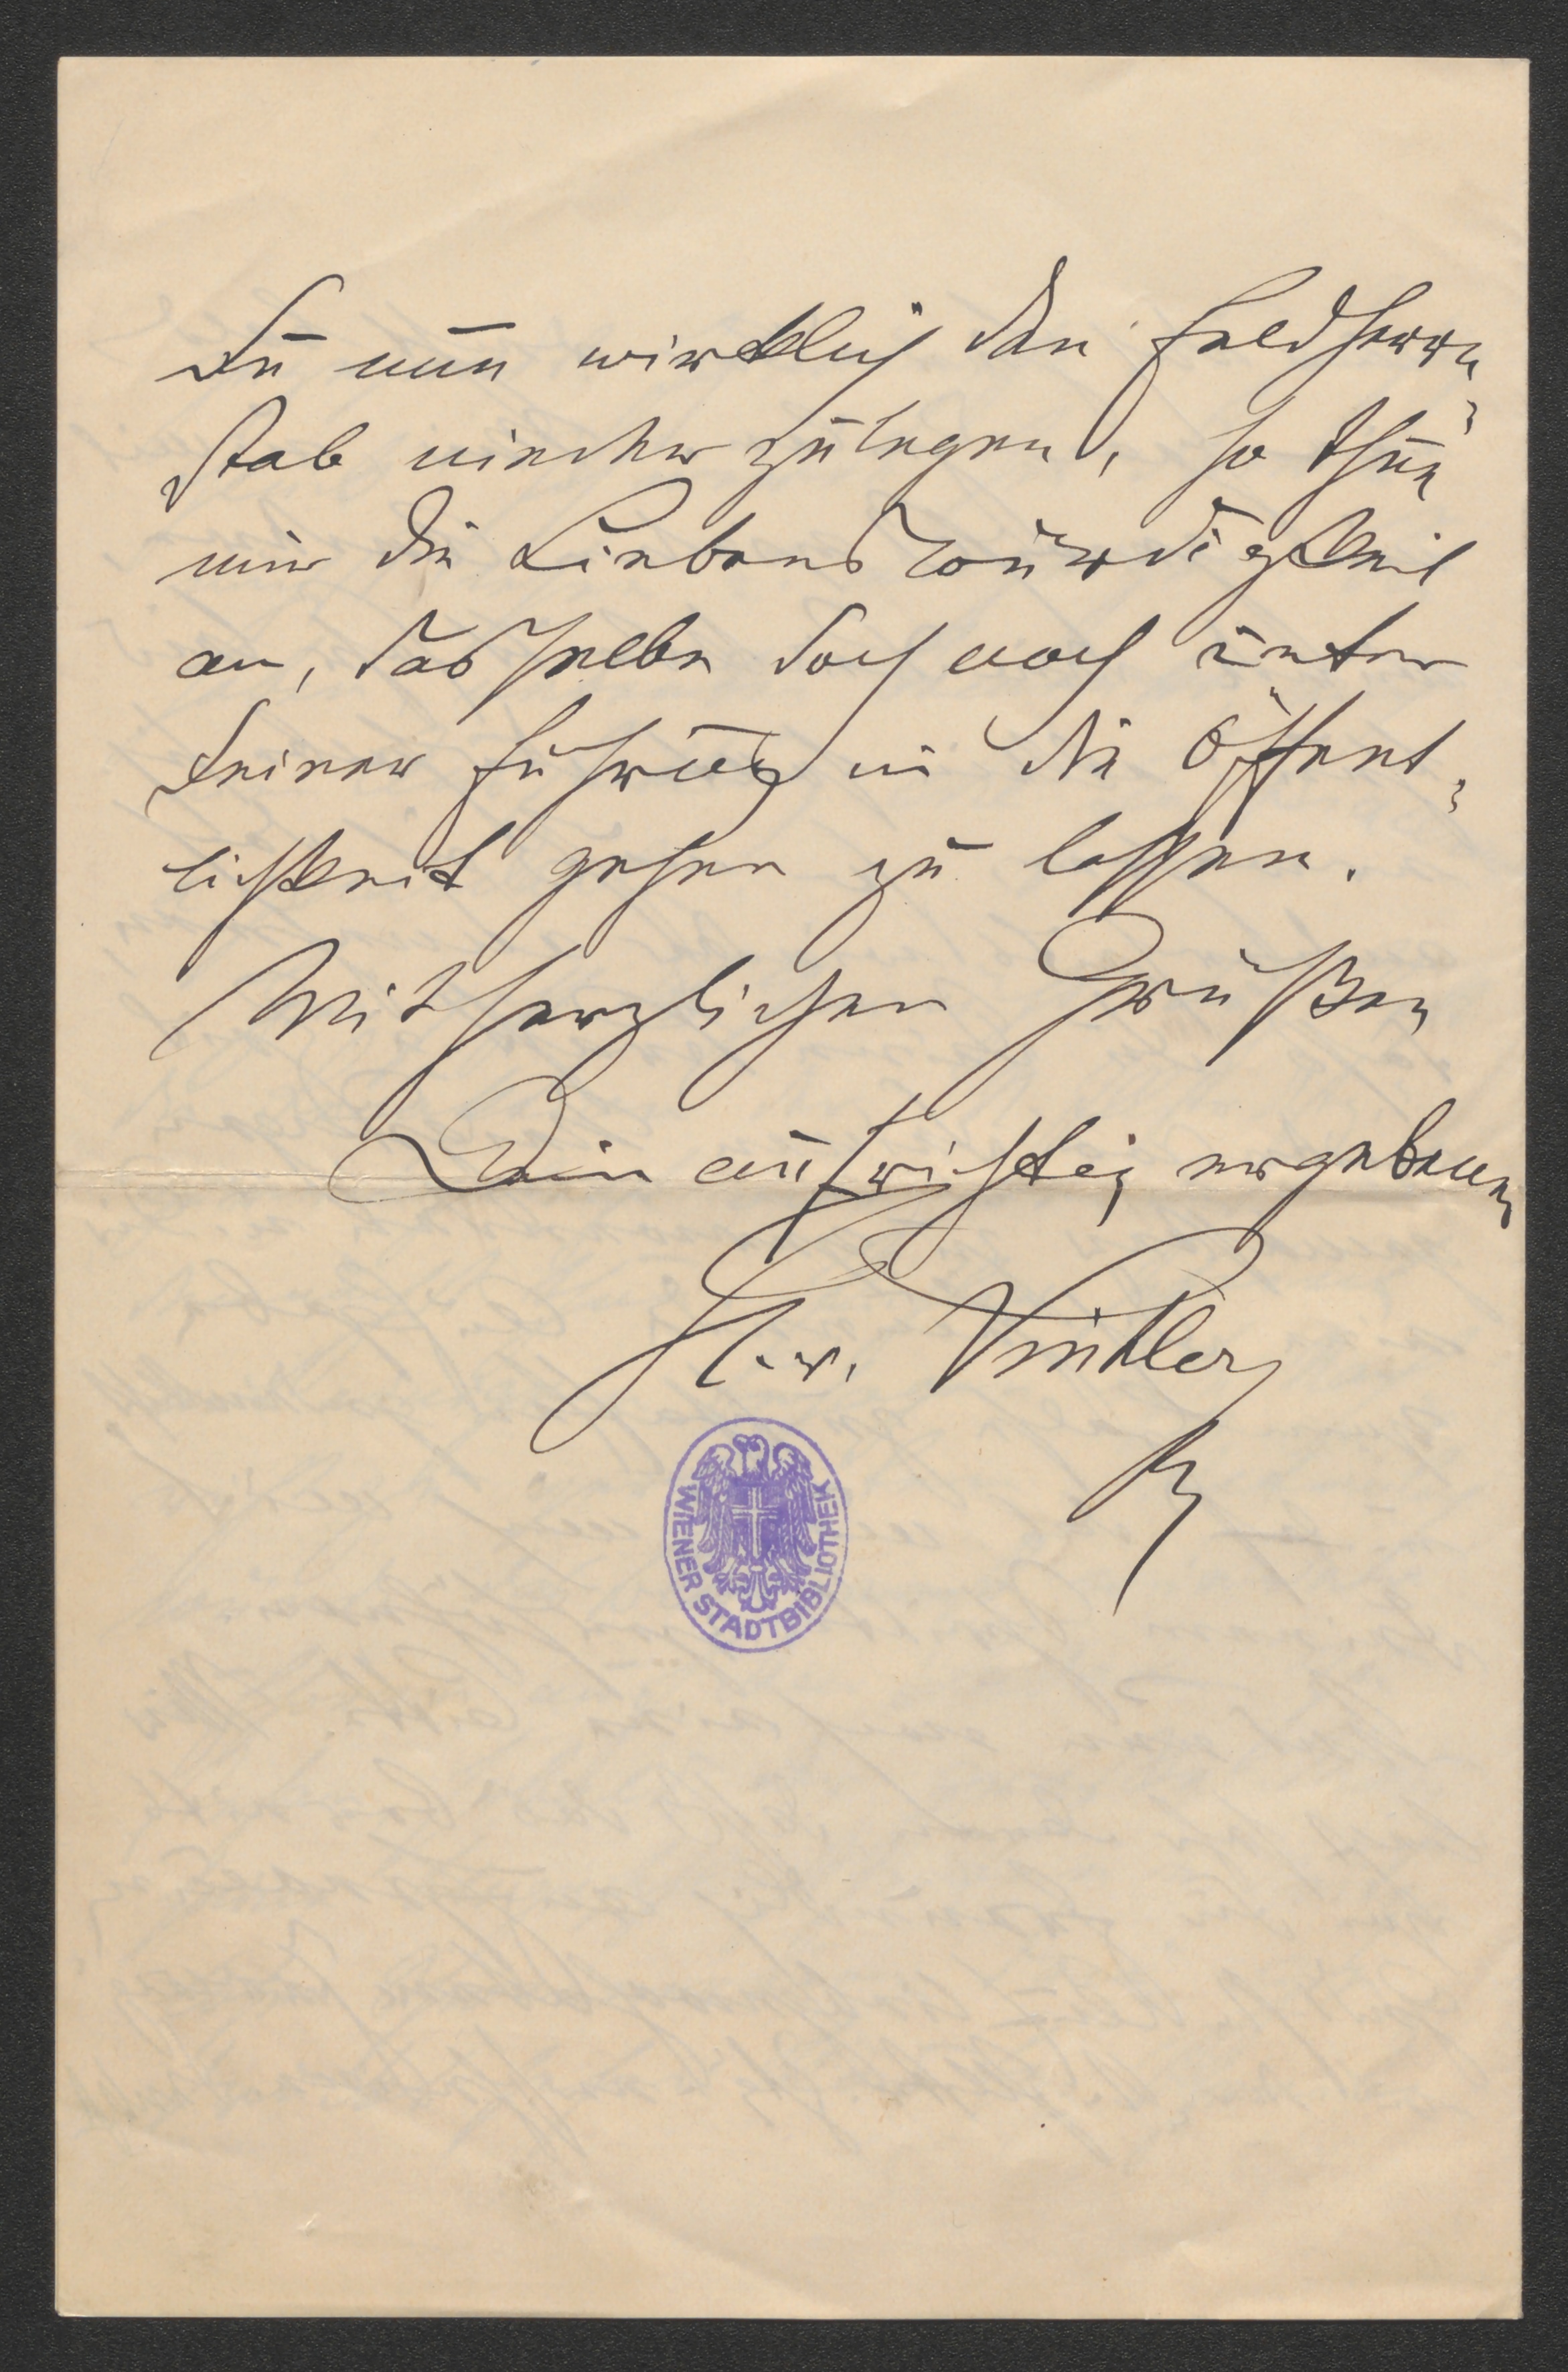 Du nun wirklich den Feldherrn-
stab niederzulegen, so thue
mir die Liebenswürdigkeit
an, dasselbe doch noch unter
Deiner Führung in die Öffent-
lichkeit gehen zu lassen.
Mit herzlichen Grüßen
Dein aufrichtig ergebener
H. v. Vintler
WIENER STADTBIBLIOTHEK